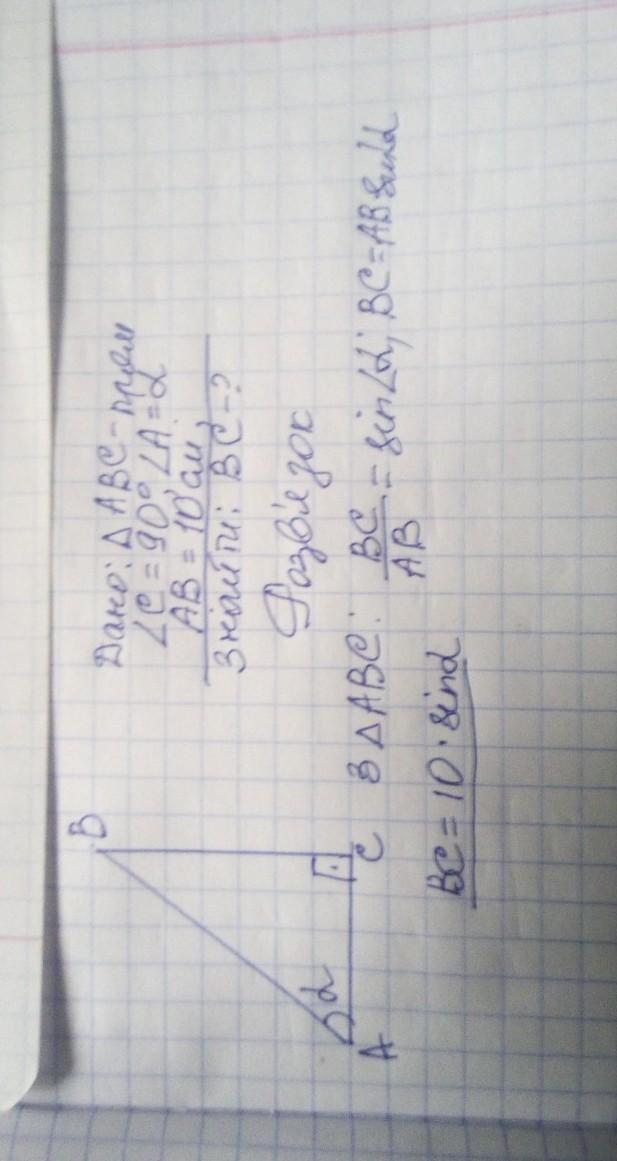 Дано: △ ABC - прям
∠C = 90°, ∠A = α
AB = 10 см
Знайти: BC - ?
Розв'язок
B
A
α
C
З △ ABC: BC/AB = sin∠α; BC = AB sinα
BC = 10 · sinα